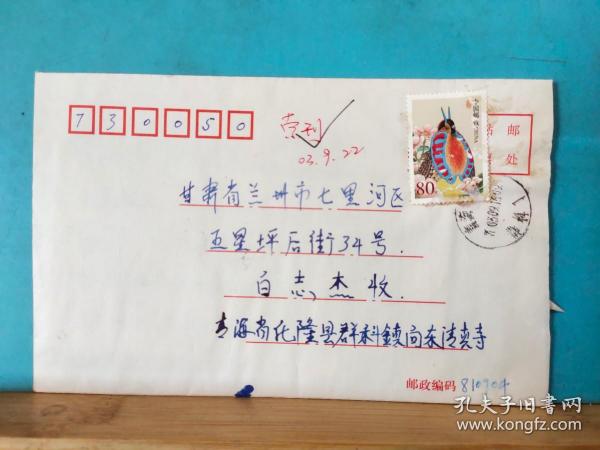 730050
索刊
03.9.22
80
贴邮
票处
甘肃省兰州市七里河区
五星坪后街34号.
白志杰收.
青海省化隆县群科镇向东清真寺
邮政编码
孔夫子旧书网
www.kongfz.com